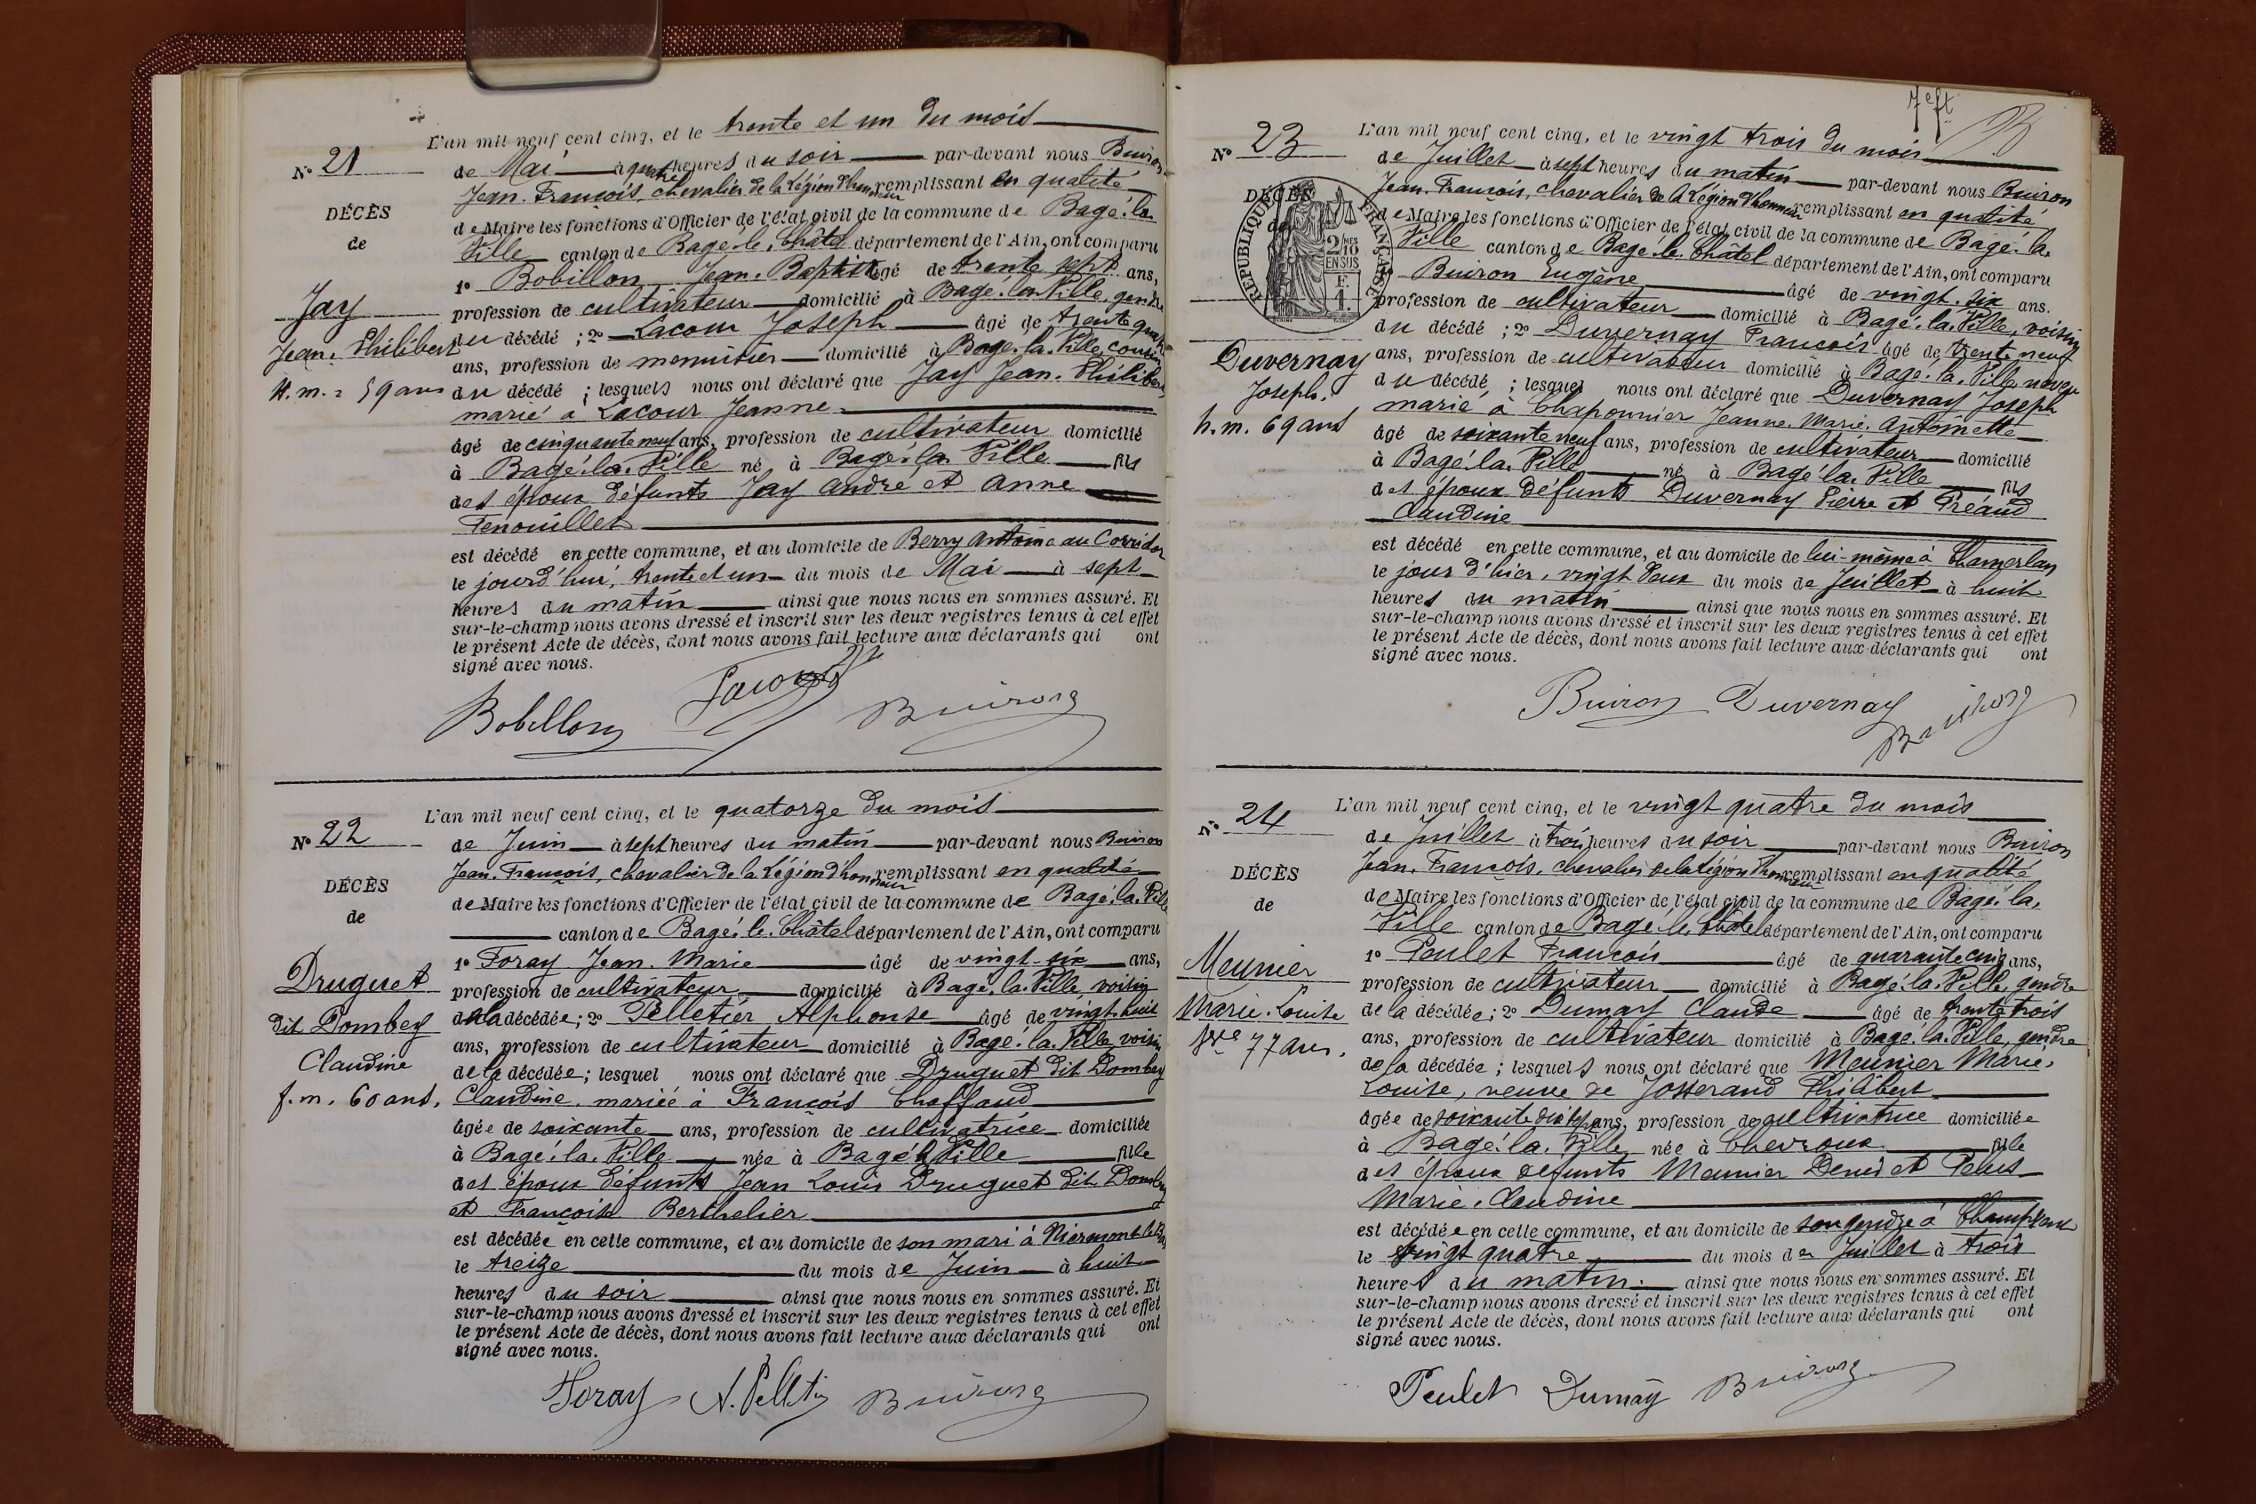 L'an mil neuf cent cinq, et le trente et un du mois
N° 21
de Mai à quatre heures du soir par-devant nous Buiron
Jean-François, chevalier de la Légion d'honneur remplissant en qualité
DÉCÈS
de Maire les fonctions d'Officier de l'état civil de la commune de Bagé-la-
de
Ville canton de Bagé-le-Châtel département de l'Ain, ont comparu
1° Bobillon Jean-Baptiste âgé de trente sept ans,
Jay
profession de cultivateur domicilié à Bagé-la-Ville, gendre
Jean-Philibert
du décédé ; 2° Lacour Joseph âgé de trente quatre
ans, profession de menuisier domicilié à Bagé-la-Ville, cousin
h. m. 59 ans
du décédé ; lesquels nous ont déclaré que Jay Jean-Philibert
marié à Lacour Jeanne
âgé de cinquante neuf ans, profession de cultivateur domicilié
à Bagé-la-Ville né à Bagé-la-Ville fils
des époux défunts Jay André et Anne
Fenouillet
est décédé en cette commune, et au domicile de Berry Antoine au Corridor
le jourd'hui, trente et un du mois de Mai à sept
heures du matin ainsi que nous nous en sommes assuré. Et
sur-le-champ nous avons dressé et inscrit sur les deux registres tenus à cet effet
le présent Acte de décès, dont nous avons fait lecture aux déclarants qui ont
signé avec nous.
Bobillon Lacour Buiron
L'an mil neuf cent cinq, et le quatorze du mois
N° 22
de Juin à sept heures du matin par-devant nous Buiron
Jean-François, chevalier de la Légion d'honneur remplissant en qualité
DÉCÈS
de Maire les fonctions d'Officier de l'état civil de la commune de Bagé-la-Ville
de
canton de Bagé-le-Châtel département de l'Ain, ont comparu
1° Foray Jean-Marie âgé de vingt-six ans,
Druguet
profession de cultivateur domicilié à Bagé-la-Ville, voisin
dit Dombey
de la décédée ; 2° Pelletier Alphonse âgé de vingt-huit
ans, profession de cultivateur domicilié à Bagé-la-Ville, voisin
Claudine
de la décédée ; lesquel nous ont déclaré que Druguet dit Dombey
f. m. 60 ans.
Claudine, mariée à François Chaffaud
âgée de soixante ans, profession de cultivatrice domiciliée
à Bagé-la-Ville née à Bagé-la-Ville fille
des époux défunts Jean Louis Druguet dit Dombey
et Françoise Berthelier
est décédée en cette commune, et au domicile de son mari à
le treize du mois de Juin à huit
heures du soir ainsi que nous nous en sommes assuré. Et
sur-le-champ nous avons dressé et inscrit sur les deux registres tenus à cet effet
le présent Acte de décès, dont nous avons fait lecture aux déclarants qui ont
signé avec nous.
Foray A. Pelletier Buiron
L'an mil neuf cent cinq, et le vingt trois du mois
N° 23
de Juillet à sept heures du matin par-devant nous Buiron
Jean-François, chevalier de la Légion d'honneur remplissant en qualité
DÉCÈS
de Maire les fonctions d'Officier de l'état civil de la commune de Bagé-la-
de
RÉPUBLIQUE FRANÇAISE
Ville canton de Bagé-le-Châtel département de l'Ain, ont comparu
1° Buiron Eugène âgé de vingt-six ans.
profession de cultivateur domicilié à Bagé-la-Ville, voisin
du décédé ; 2° Duvernay François âgé de trente neuf
Duvernay
ans, profession de cultivateur domicilié à Bagé-la-Ville neveu
Joseph.
du décédé ; lesquel nous ont déclaré que Duvernay Joseph
marié à Chaponnier Jeanne-Marie-Antoinette
h. m. 69 ans
âgé de soixante neuf ans, profession de cultivateur domicilié
à Bagé-la-Ville né à Bagé-la-Ville fils
des époux défunts Duvernay Pierre et Préaud
Claudine
est décédé en cette commune, et au domicile de lui-même à Chamerlan
le jour d'hier, vingt deux du mois de Juillet à huit
heures du matin ainsi que nous nous en sommes assuré. Et
sur-le-champ nous avons dressé et inscrit sur les deux registres tenus à cet effet
le présent Acte de décès, dont nous avons fait lecture aux déclarants qui ont
signé avec nous.
Buiron Duvernay Buiron
L'an mil neuf cent cinq, et le vingt quatre du mois
N° 24
de Juillet à trois heures du soir par-devant nous Buiron
Jean-François, chevalier de la Légion d'honneur remplissant en qualité
DÉCÈS
de Maire les fonctions d'Officier de l'état civil de la commune de Bagé-la-
de
Ville canton de Bagé-le-Châtel département de l'Ain, ont comparu
1° Peulet François âgé de quarante cinq ans,
Meunier
profession de cultivateur domicilié à Bagé-la-Ville, gendre
Marie-Louise
de la décédée ; 2° Dumay Claude âgé de trente trois
ans, profession de cultivateur domicilié à Bagé-la-Ville, gendre
vve 77 ans.
de la décédée ; lesquels nous ont déclaré que Meunier Marie-
Louise, veuve de Josserand Philibert
âgée de soixante dix sept ans, profession de cultivatrice domiciliée
à Bagé-la-Ville née à Chevroux fille
des époux défunts Meunier Denis et Pelus
Marie-Claudine
est décédée en cette commune, et au domicile de son gendre à
le vingt quatre du mois de Juillet à trois
heures du matin. ainsi que nous nous en sommes assuré. Et
sur-le-champ nous avons dressé et inscrit sur les deux registres tenus à cet effet
le présent Acte de décès, dont nous avons fait lecture aux déclarants qui ont
signé avec nous.
Peulet Dumay Buiron